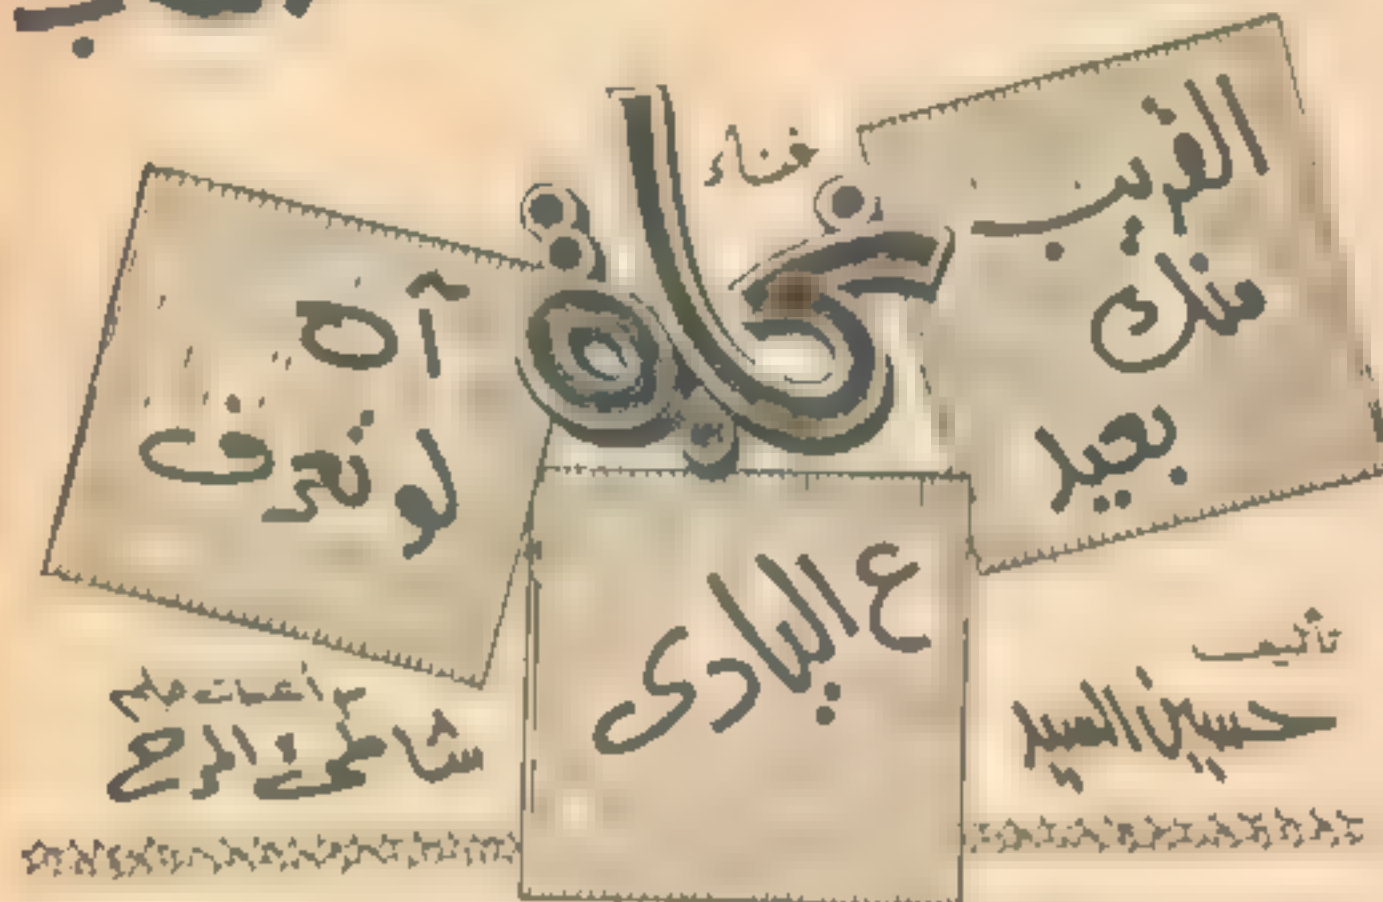 غناء
نجاة
القريب
منك
بعيد
آه
لو تعرف
ع اليادى
تأليف
حسين السيد
من أغنيات فيلم
شاطئ المرح